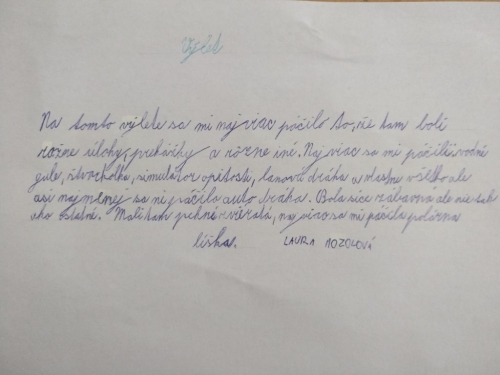 Výlet
Na tomto výlete sa mi naj viac páčilo to, že tam boli
rôzne úlohy, prekážky a rôzne iné. Naj viac sa mi páčili vodné
gule, štvorkolka, simulátor opitosti, lanová dráha a vlastne všetko ale
asi najmenej sa mi páčila auto dráha. Bola síce zábavná ale nie tak
ako ostatné. Mali tam pekné zvieratá, naj viac sa mi páčila polárna
líška. LAURA MOZOLOVÁ